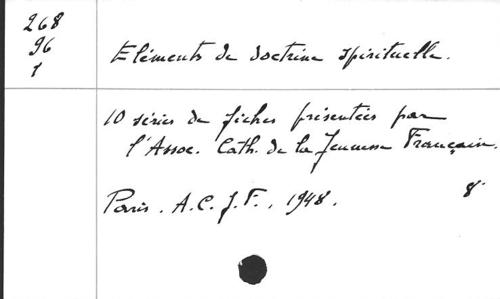 268
96
1
Eléments de doctrine spirituelle.
10 séries de fiches présentées par
l'Assoc. Cath. de la Jeunesse Française.
Paris. A.C.J.F., 1948. 8°